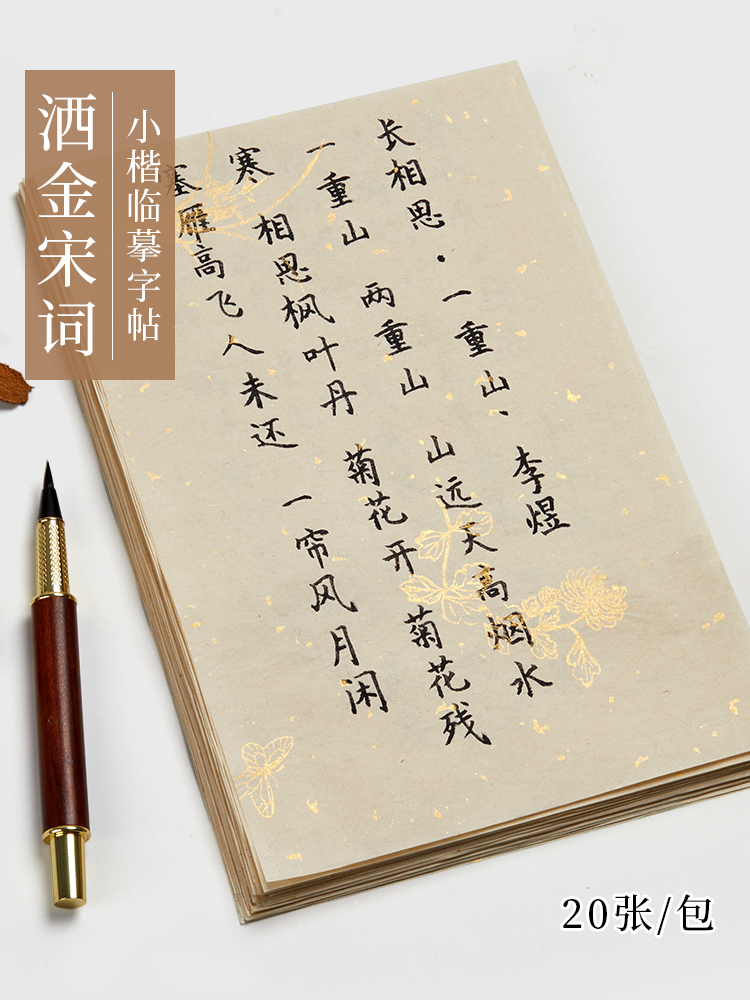 洒金宋词
小楷临摹字帖
长相思·一重山· 李煜
一重山 两重山 山远天高烟水
寒 相思枫叶丹 菊花开 菊花残
塞雁高飞人未还 一帘风月闲
20张/包